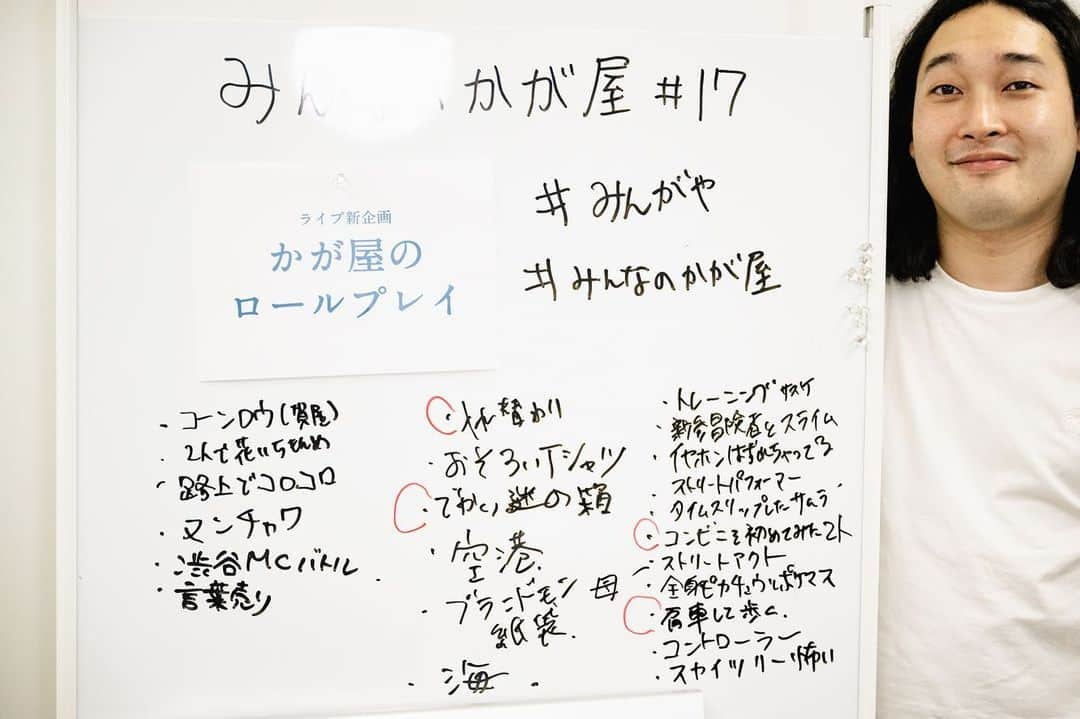 みんなのかが屋 #17
#みんがや
#みんなのかが屋
ライブ新企画
かが屋の
ロールプレイ
・コーンロウ(賀屋)
・2人で花いちもんめ
・路上でコロコロ
・ヌンチャク
・渋谷MCバトル
・言葉売り
・入れ替わり
・おそろいTシャツ
・でかい謎の箱
・空港
・ブランドモン 母
紙袋.
・海
・トレーニング
・新参冒険者とスライム
・イヤホンはずめちゃってる
・ストリートパフォーマー
・タイムスリップしたサムラ
・コンビニを初めてみた2人
・ストリートアクト
・全身ピカチュウとポケマス
・肩車して歩く.
・コントローラー
・スカイツリー怖い